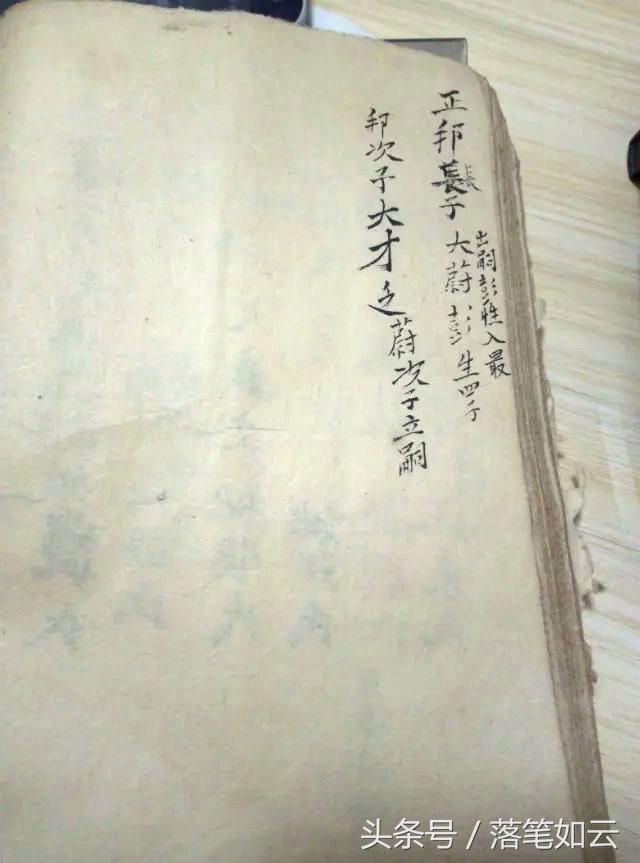 正邦長子
長
大蔚彭生四子
出嗣彭姓入最
邦次子大才乏
蔚次子立嗣
头条号 / 落笔如云